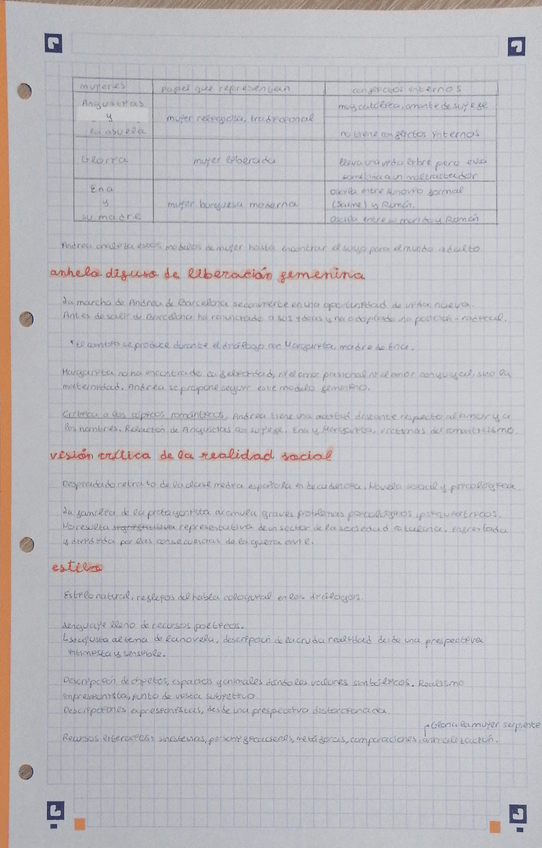 mujeres papel que representan conflictos internos
Angustias muy católica, amante de su jefe
y mujer religiosa, tradicional
la abuela no tiene conflictos internos
Gloria mujer liberada lleva una vida libre pero está
sometida a un maltratador
Ena oscila entre novio formal
y mujer burguesa moderna (Jaime) y Román.
su madre oscila entre su marido y Román
Andrea analiza estos modelos de mujer hasta encontrar el suyo para el mundo adulto.
anhelo difuso de liberación femenina
La marcha de Andrea de Barcelona se convierte en una oportunidad de vida nueva.
Antes de salir de Barcelona ha renunciado a sus ideas y ha adoptado una posición + radical.
*El cambio se produce durante el diálogo con Margarita, madre de Ena.
Margarita no ha encontrado su felicidad, ni el amor pasional ni el amor conyugal, sino la
maternidad. Andrea se propone seguir este modelo femenino.
Crítica a los tópicos románticos, Andrea tiene una actitud distante respecto al amor y a
los hombres. Relación de Angustias con su jefe. Ena y Margarita, víctimas del romanticismo.
visión crítica de la realidad social
Despiadado retrato de la clase media española en decadencia. Novela social y psicológica.
La familia de la protagonista acumula graves problemas psicológicos y psiquiátricos.
No resulta representativa de un sector de la sociedad
y dividida por las consecuencias de la guerra civil.
estilo
Estilo natural, reflejos del habla coloquial en los diálogos.
Lenguaje lleno de recursos poéticos.
Lo ajusta al tema de la novela, descripción de la cruda realidad desde una prespectiva
intimista y sensible.
Descripción de objetos, espacios y animales dándoles valores simbólicos. Realismo
impresionista, punto de vista subjetivo.
Descripciones expresionistas, desde una prespectiva distorsionada.
Gloria la mujer serpiente
Recursos literarios: sinestesias, personificaciones, metáforas, comparaciones, animalización.